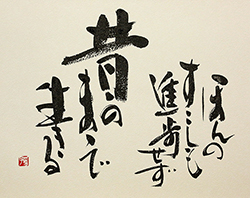 ほんの
すこしも
進歩せず
昔の
ままで
生きる